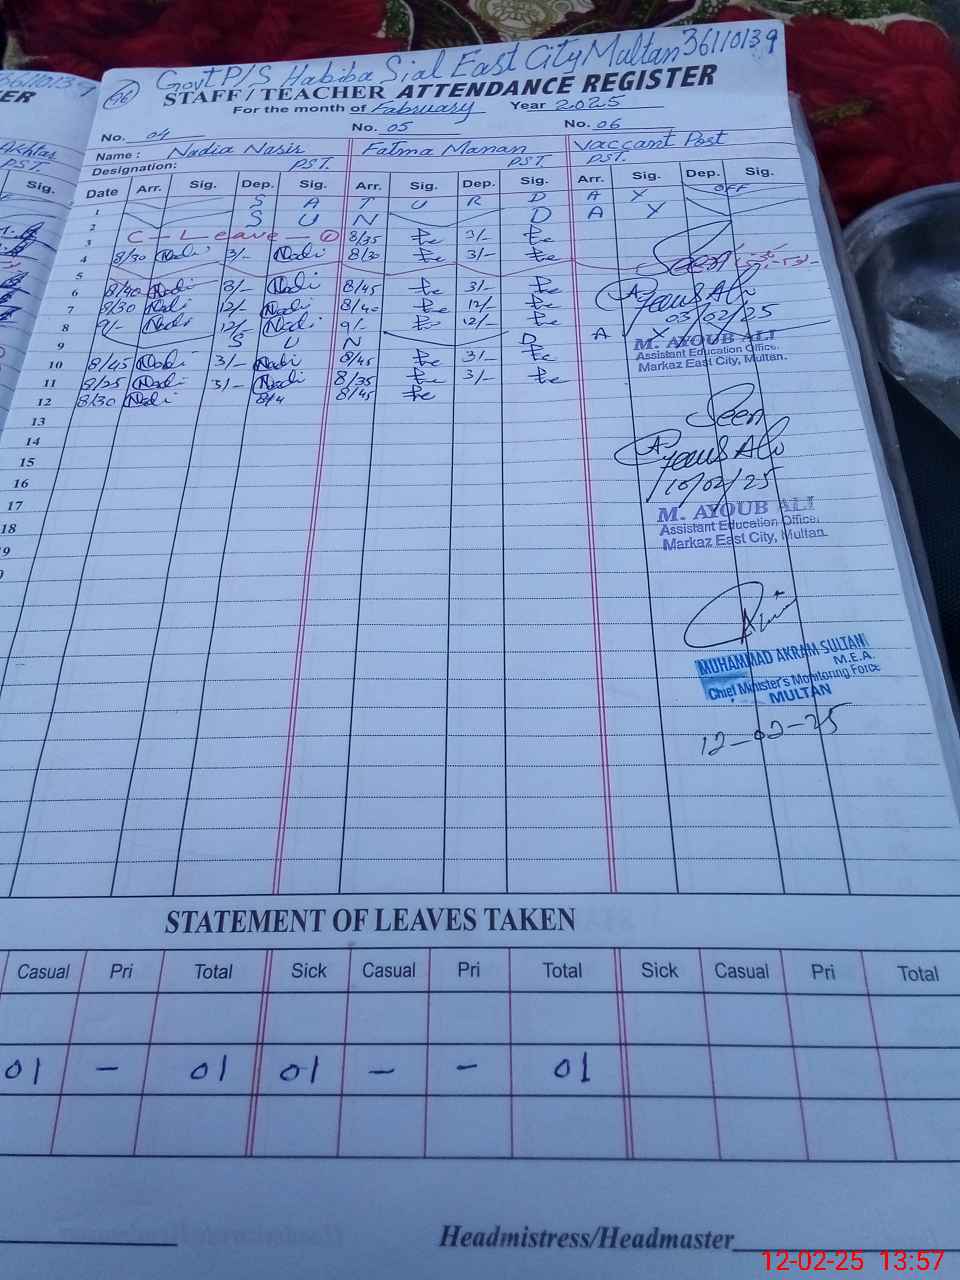 96
Govt P/S Habiba Sial East City Multan 36110139
STAFF/TEACHER ATTENDANCE REGISTER
For the month of Fabruary Year 2025
No. 04 No. 05 No. 06
Name : Nadia Nasir Fatma Manan Vaccant Post
Designation: PST. PST. PST.
Date Arr. Sig. Dep. Sig. Arr. Sig. Dep. Sig. Arr. Sig. Dep. Sig.
1 S A T U R D A Y OFF
2 S U N D A Y
3 C - Leave - 1 8/35 3/-
4 8/30 Nadi 3/- Nadi 8/30 3/-
5
6 8/40 Nadi 3/- Nadi 8/45 3/-
7 8/30 Nadi 12/- Nadi 8/40 12/-
8 9/- Nadi 12/- Nadi 9/- 12/-
9 S U N D A Y
10 8/45 Nadi 3/- Nadi 8/45 3/-
11 8/25 Nadi 3/- Nadi 8/35 3/-
12 8/30 Nadi 8/45
13
14
15
16
17
18
Seen
03/02/25
M. AYOUB ALI
Assistant Education Officer,
Markaz East City, Multan.
Seen
10/02/25
M. AYOUB ALI
Assistant Education Officer,
Markaz East City, Multan.
MUHAMMAD AKRAM SULTANI
M.E.A.
Chief Minister's Monitoring Force
MULTAN
12-02-25
STATEMENT OF LEAVES TAKEN
Casual Pri Total Sick Casual Pri Total Sick Casual Pri Total
01 - 01 01 - - 01
Headmistress/Headmaster
12-02-25 13:57